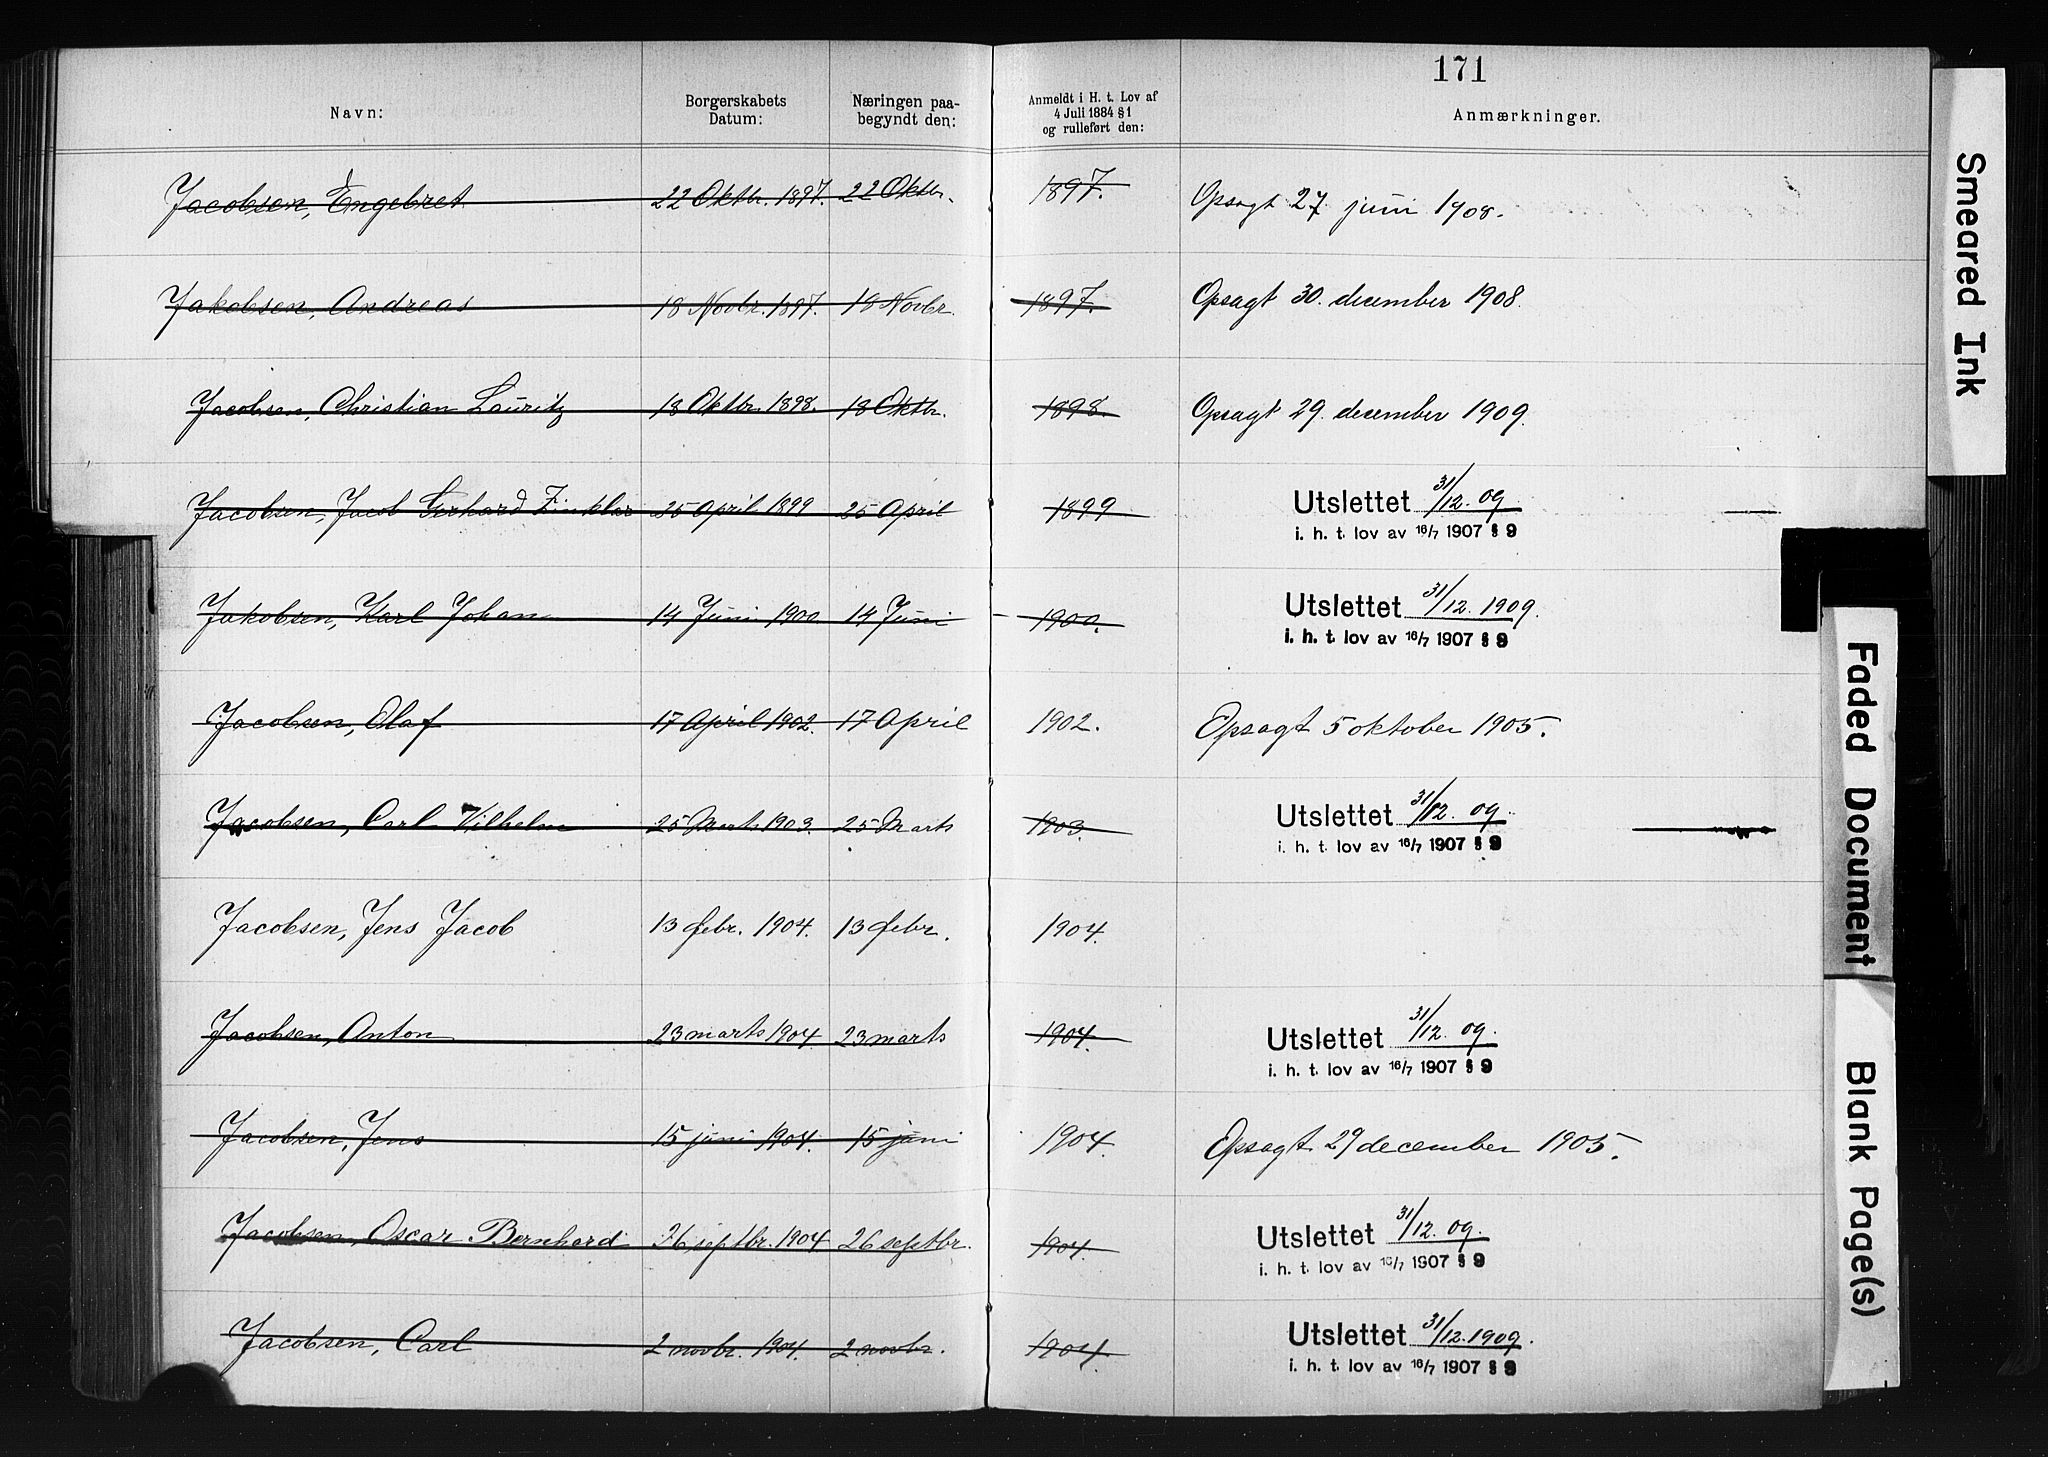 171
Navn: Borgerskabets Datum: Næringen paa-begyndt den: Anmeldt i H. t. Lov af 4 Juli 1884 § 1 og rulleført den: Anmærkninger.
Jacobsen, Engebret 22 Oktbr. 1897. 22 Oktbr. 1897. Opsagt 27 juni 1908.
Jakobsen, Andreas 18 Novbr. 1897. 18 Novbr. 1897. Opsagt 30. december 1908.
Jacobsen, Christian Lauritz 18 Oktbr. 1898. 18 Oktbr. 1898. Opsagt 29. december 1909.
Jacobsen, Jacob Gerhard Zinklar 25 April 1899 25 April 1899 Utslettet 31/12. 09
i. h. t. lov av 16/7 1907 § 9
Jakobsen, Karl Johan 14 Juni 1900 14 Juni 1900. Utslettet 31/12. 1909.
i. h. t. lov av 16/7 1907 § 9
Jacobsen, Olaf 17 April 1902. 17 April 1902. Opsagt 5 oktober 1905.
Jacobsen, Carl Vilhelm 25 Marts 1903. 25 Marts 1903. Utslettet 31/12. 09.
i. h. t. lov av 16/7 1907 § 9
Jacobsen, Jens Jacob 13 febr. 1904. 13 febr. 1904.
Jacobsen, Anton 23 marts 1904. 23 marts 1904. Utslettet 31/12. 09.
i. h. t. lov av 16/7 1907 § 9
Jacobsen, Jens 15 juni 1904. 15 juni 1904. Opsagt 29 december 1905.
Jacobsen, Oscar Bernhard 26 septbr. 1904 26 septbr. 1904. Utslettet 31/12. 09.
i. h. t. lov av 16/7 1907 § 9
Jacobsen, Carl 2 novbr. 1904. 2 novbr. 1904. Utslettet 31/12. 1909.
i. h. t. lov av 16/7 1907 § 9
Smeared Ink
Faded Document
Blank Page(s)